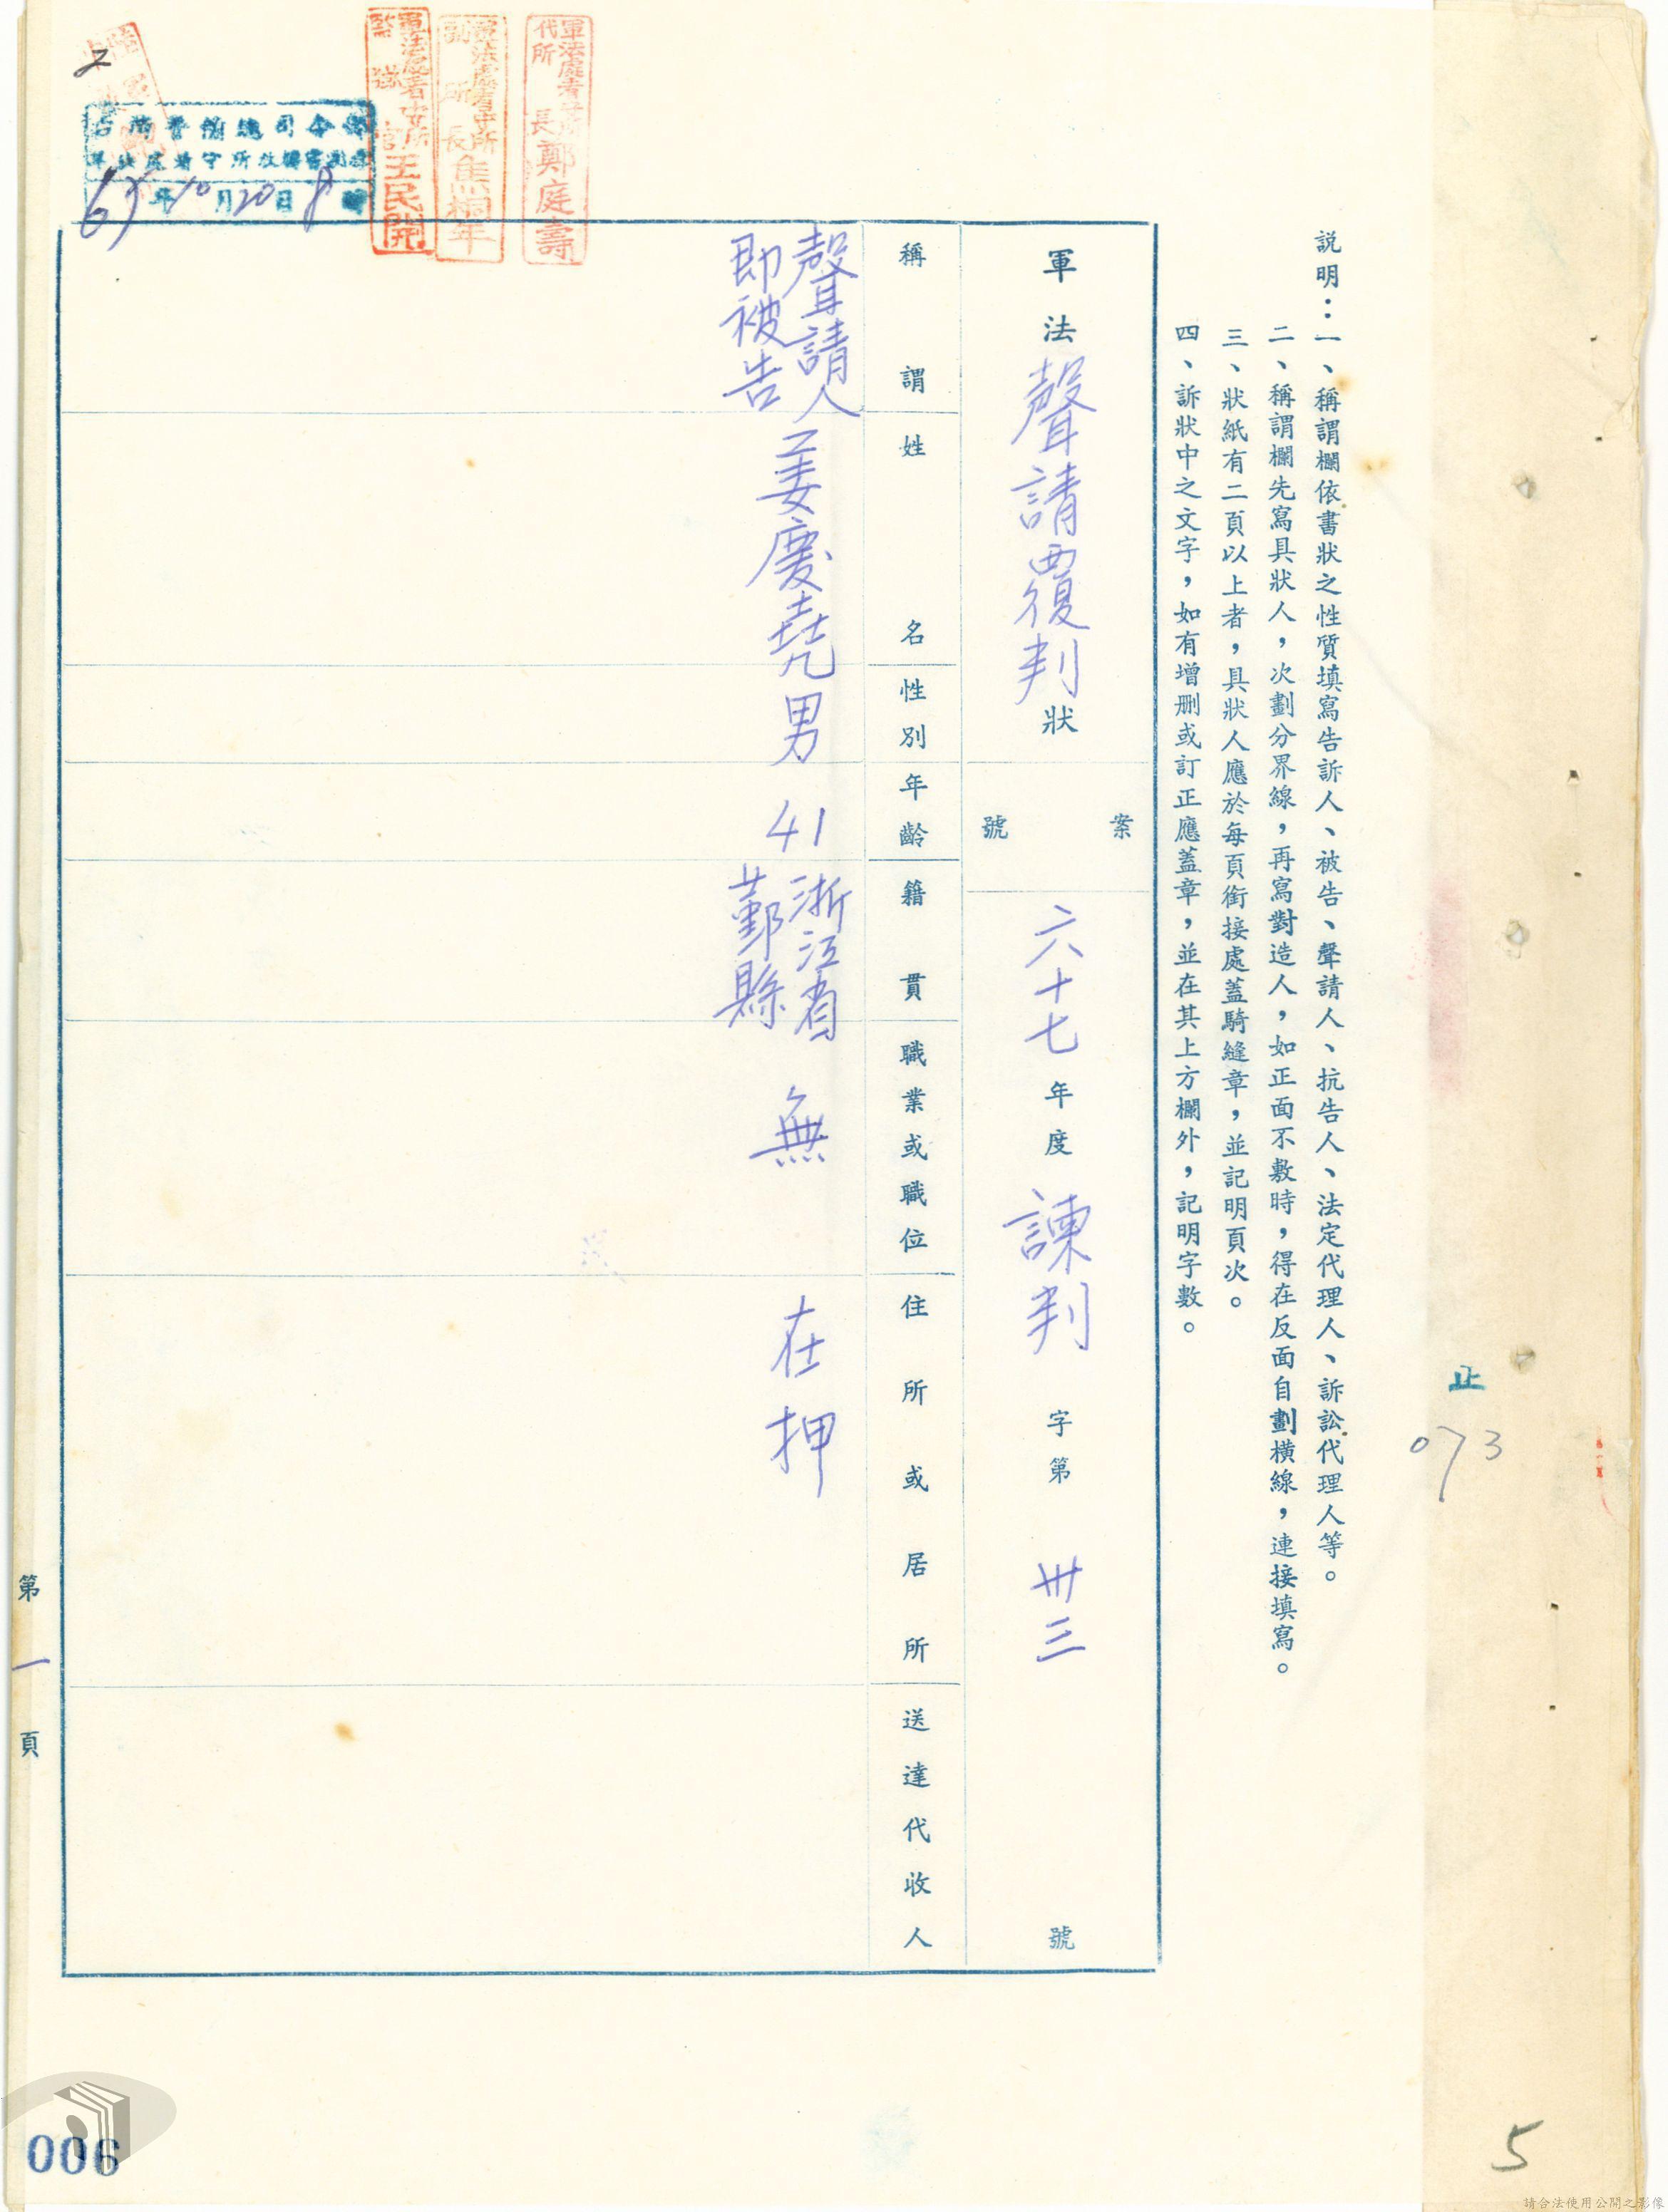 説明：一、稱謂欄依書狀之性質填寫告訴人、被告、聲請人、抗告人、法定代理人、訴訟代理人等。
二、稱謂欄先寫具狀人，次劃分界線，再寫對造人，如正面不敷時，得在反面自劃橫線，連接填寫。
三、狀紙有二頁以上者，具狀人應於每頁銜接處蓋騎縫章，並記明頁次。
四、訴狀中之文字，如有增刪或訂正應蓋章，並在其上方欄外，記明字數。
軍法聲請覆判狀
案號
六十七年度諫判字第卅三號
稱謂
姓名
性別
年齡
籍貫
職業或職位
住所或居所
送達代收人
聲請人
即被告
姜慶堯
男
41
浙江省
鄞縣
無
在押
軍法處看守所
代所長鄭庭壽
軍法處看守所
副所長焦桐年
軍法處看守所
監獄官王民開
67年10月20日8時
2
第一頁
止
073
006
5
請合法使用公開之影像